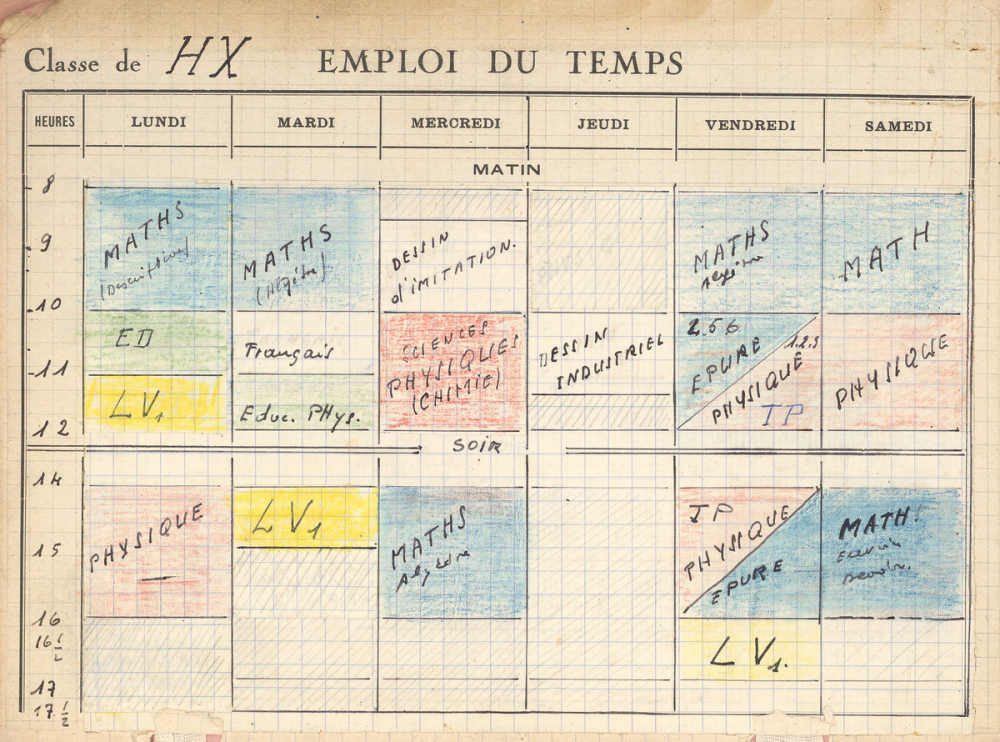 Classe de HX EMPLOI DU TEMPS
HEURES LUNDI MARDI MERCREDI JEUDI VENDREDI SAMEDI
MATIN
8
9
10
11
12
MATHS
ED
LV1
MATHS
(Algèbre)
Français
Educ. PHys.
DESSIN
d'IMITATION.
SCIENCES
PHYSIQUES
(CHIMIE)
DESSIN
INDUSTRIEL
MATHS
Algèbre
2.5 6
EPURE
1.2.3
PHYSIQUE
TP
MATH
PHYSIQUE
SOIR
14
15
16
16 1/2
17
17 1/2
PHYSIQUE
LV1
MATHS
Algèbre
TP
PHYSIQUE
EPURE
LV1.
MATH